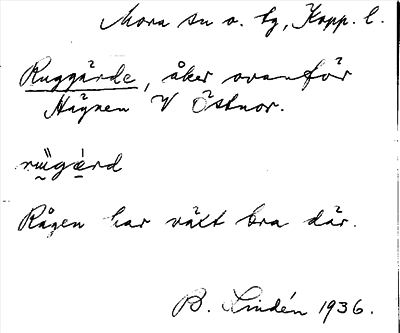 Mora sn o. tg, Kopp. l.
Ruggärde, åker ovanför
Hägnen V Östnor.
Rågen har växt bra där.
B. Lindén 1936.